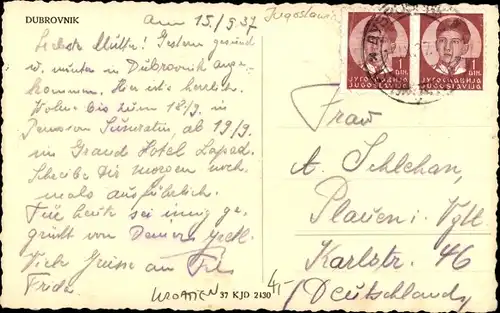 DUBROVNIK
Am 15/9 37
Jugoslawi
Liebste Mutter! Gestern gesund
u. munter in Dubrovnik ange-
kommen. Hier ist es herrlich.
Wohne bis zum 18/9. in
Pension ab 19/9.
im Grand Hotel Lapad.
Schreibe Dir morgen noch-
mals ausführlich.
Für heute sei innig ge-
grüßt von Deinem
Viele Grüsse an
Frida
KROATIEN
37 KJD 2130
1
ДИН.
ЈУГОСЛАВИЈА
JUGOSLAVIJA
1
DIN.
ЈУГОСЛАВИЈА
JUGOSLAVIJA
Frau
A. Schlehan,
Plauen i. Vgtl.
Karlstr. 46
(Deutschland)